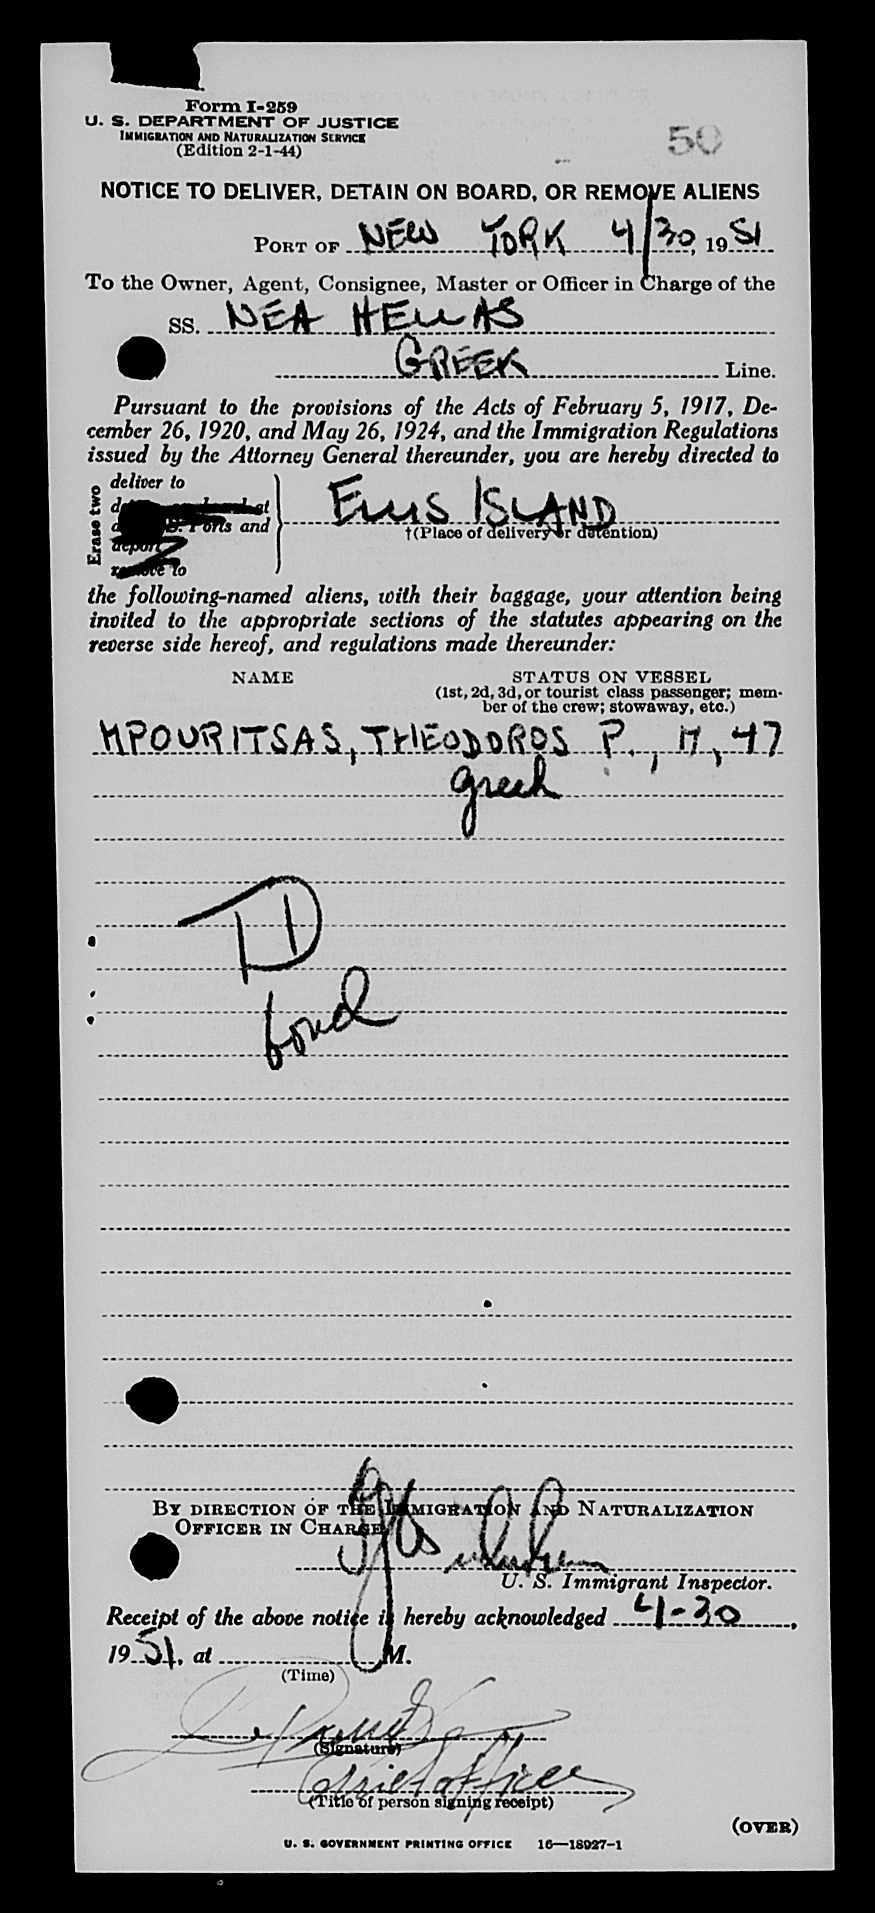 Form I-259
U. S. DEPARTMENT OF JUSTICE
IMMIGRATION AND NATURALIZATION SERVICE
(Edition 2-1-44)
50
NOTICE TO DELIVER, DETAIN ON BOARD, OR REMOVE ALIENS
PORT OF NEW YORK 4/30, 19 51
To the Owner, Agent, Consignee, Master or Officer in Charge of the
SS. NEA HELLAS
GREEK Line.
Pursuant to the provisions of the Acts of February 5, 1917, De-
cember 26, 1920, and May 26, 1924, and the Immigration Regulations
issued by the Attorney General thereunder, you are hereby directed to
Erase two
deliver to
at
Ports and
deport
remove to
ELLIS ISLAND
†(Place of delivery or detention)
the following-named aliens, with their baggage, your attention being
invited to the appropriate sections of the statutes appearing on the
reverse side hereof, and regulations made thereunder:
NAME STATUS ON VESSEL
(1st, 2d, 3d, or tourist class passenger; mem-
ber of the crew; stowaway, etc.)
MPOURITSAS, THEODOROS P., M, 47
greek
D
bond
BY DIRECTION OF THE IMMIGRATION AND NATURALIZATION
OFFICER IN CHARGE
U. S. Immigrant Inspector.
Receipt of the above notice is hereby acknowledged 4-30,
19 51, at M.
(Time)
(Signature)
Chief officer
(Title of person signing receipt)
(OVER)
U. S. GOVERNMENT PRINTING OFFICE 16—18927-1